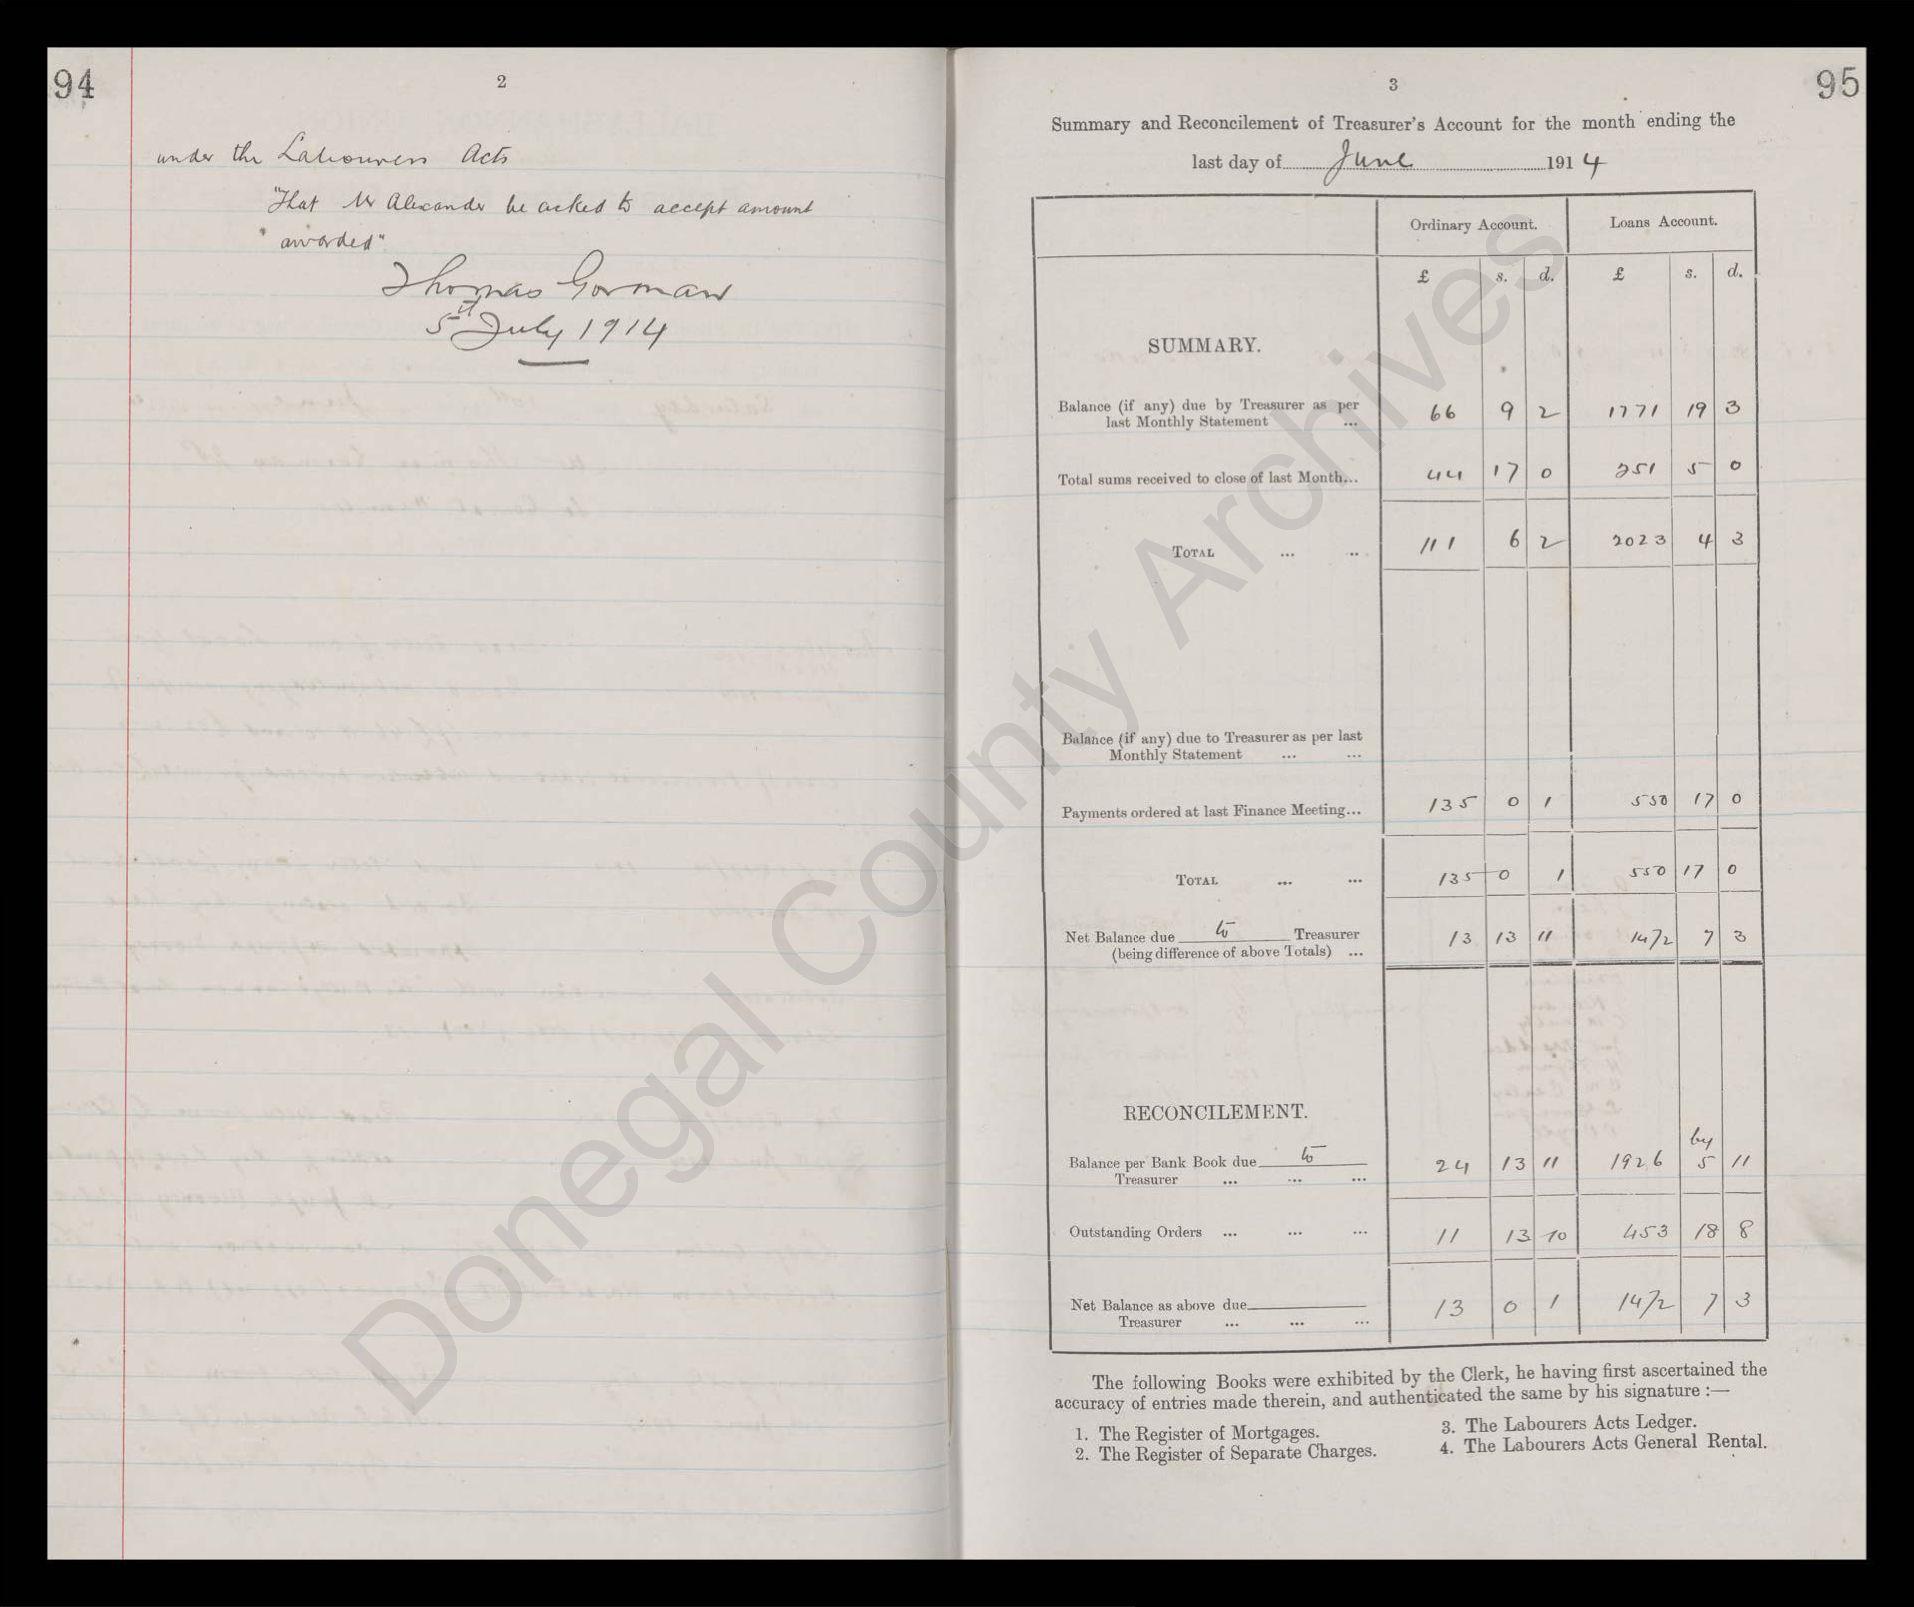 94
2
under the Labourers Acts
"That Mr Alexander be asked to accept amount
" awarded"
Thomas Gorman
5th July 1914
3
95
Summary and Reconcilement of Treasurer's Account for the month ending the
last day of June 1914
Ordinary Account. Loans Account.
£ s. d. £ s. d.
SUMMARY.
Balance (if any) due by Treasurer as per
last Monthly Statement ... 66 9 2 1771 19 3
Total sums received to close of last Month... 44 17 0 251 5 0
TOTAL ... .. 111 6 2 2023 4 3
Balance (if any) due to Treasurer as per last
Monthly Statement ... ...
Payments ordered at last Finance Meeting... 135 0 1 550 17 0
TOTAL ... ... 135 0 1 550 17 0
Net Balance due to Treasurer
(being difference of above Totals) ... 13 13 11 1472 7 3
RECONCILEMENT.
by
Balance per Bank Book due to
Treasurer ... ... ... 24 13 11 1926 5 11
Outstanding Orders ... ... ... 11 13 10 453 18 8
Net Balance as above due
Treasurer ... ... ... 13 0 1 1472 7 3
The following Books were exhibited by the Clerk, he having first ascertained the
accuracy of entries made therein, and authenticated the same by his signature :—
1. The Register of Mortgages.
2. The Register of Separate Charges.
3. The Labourers Acts Ledger.
4. The Labourers Acts General Rental.
Donegal County Archives